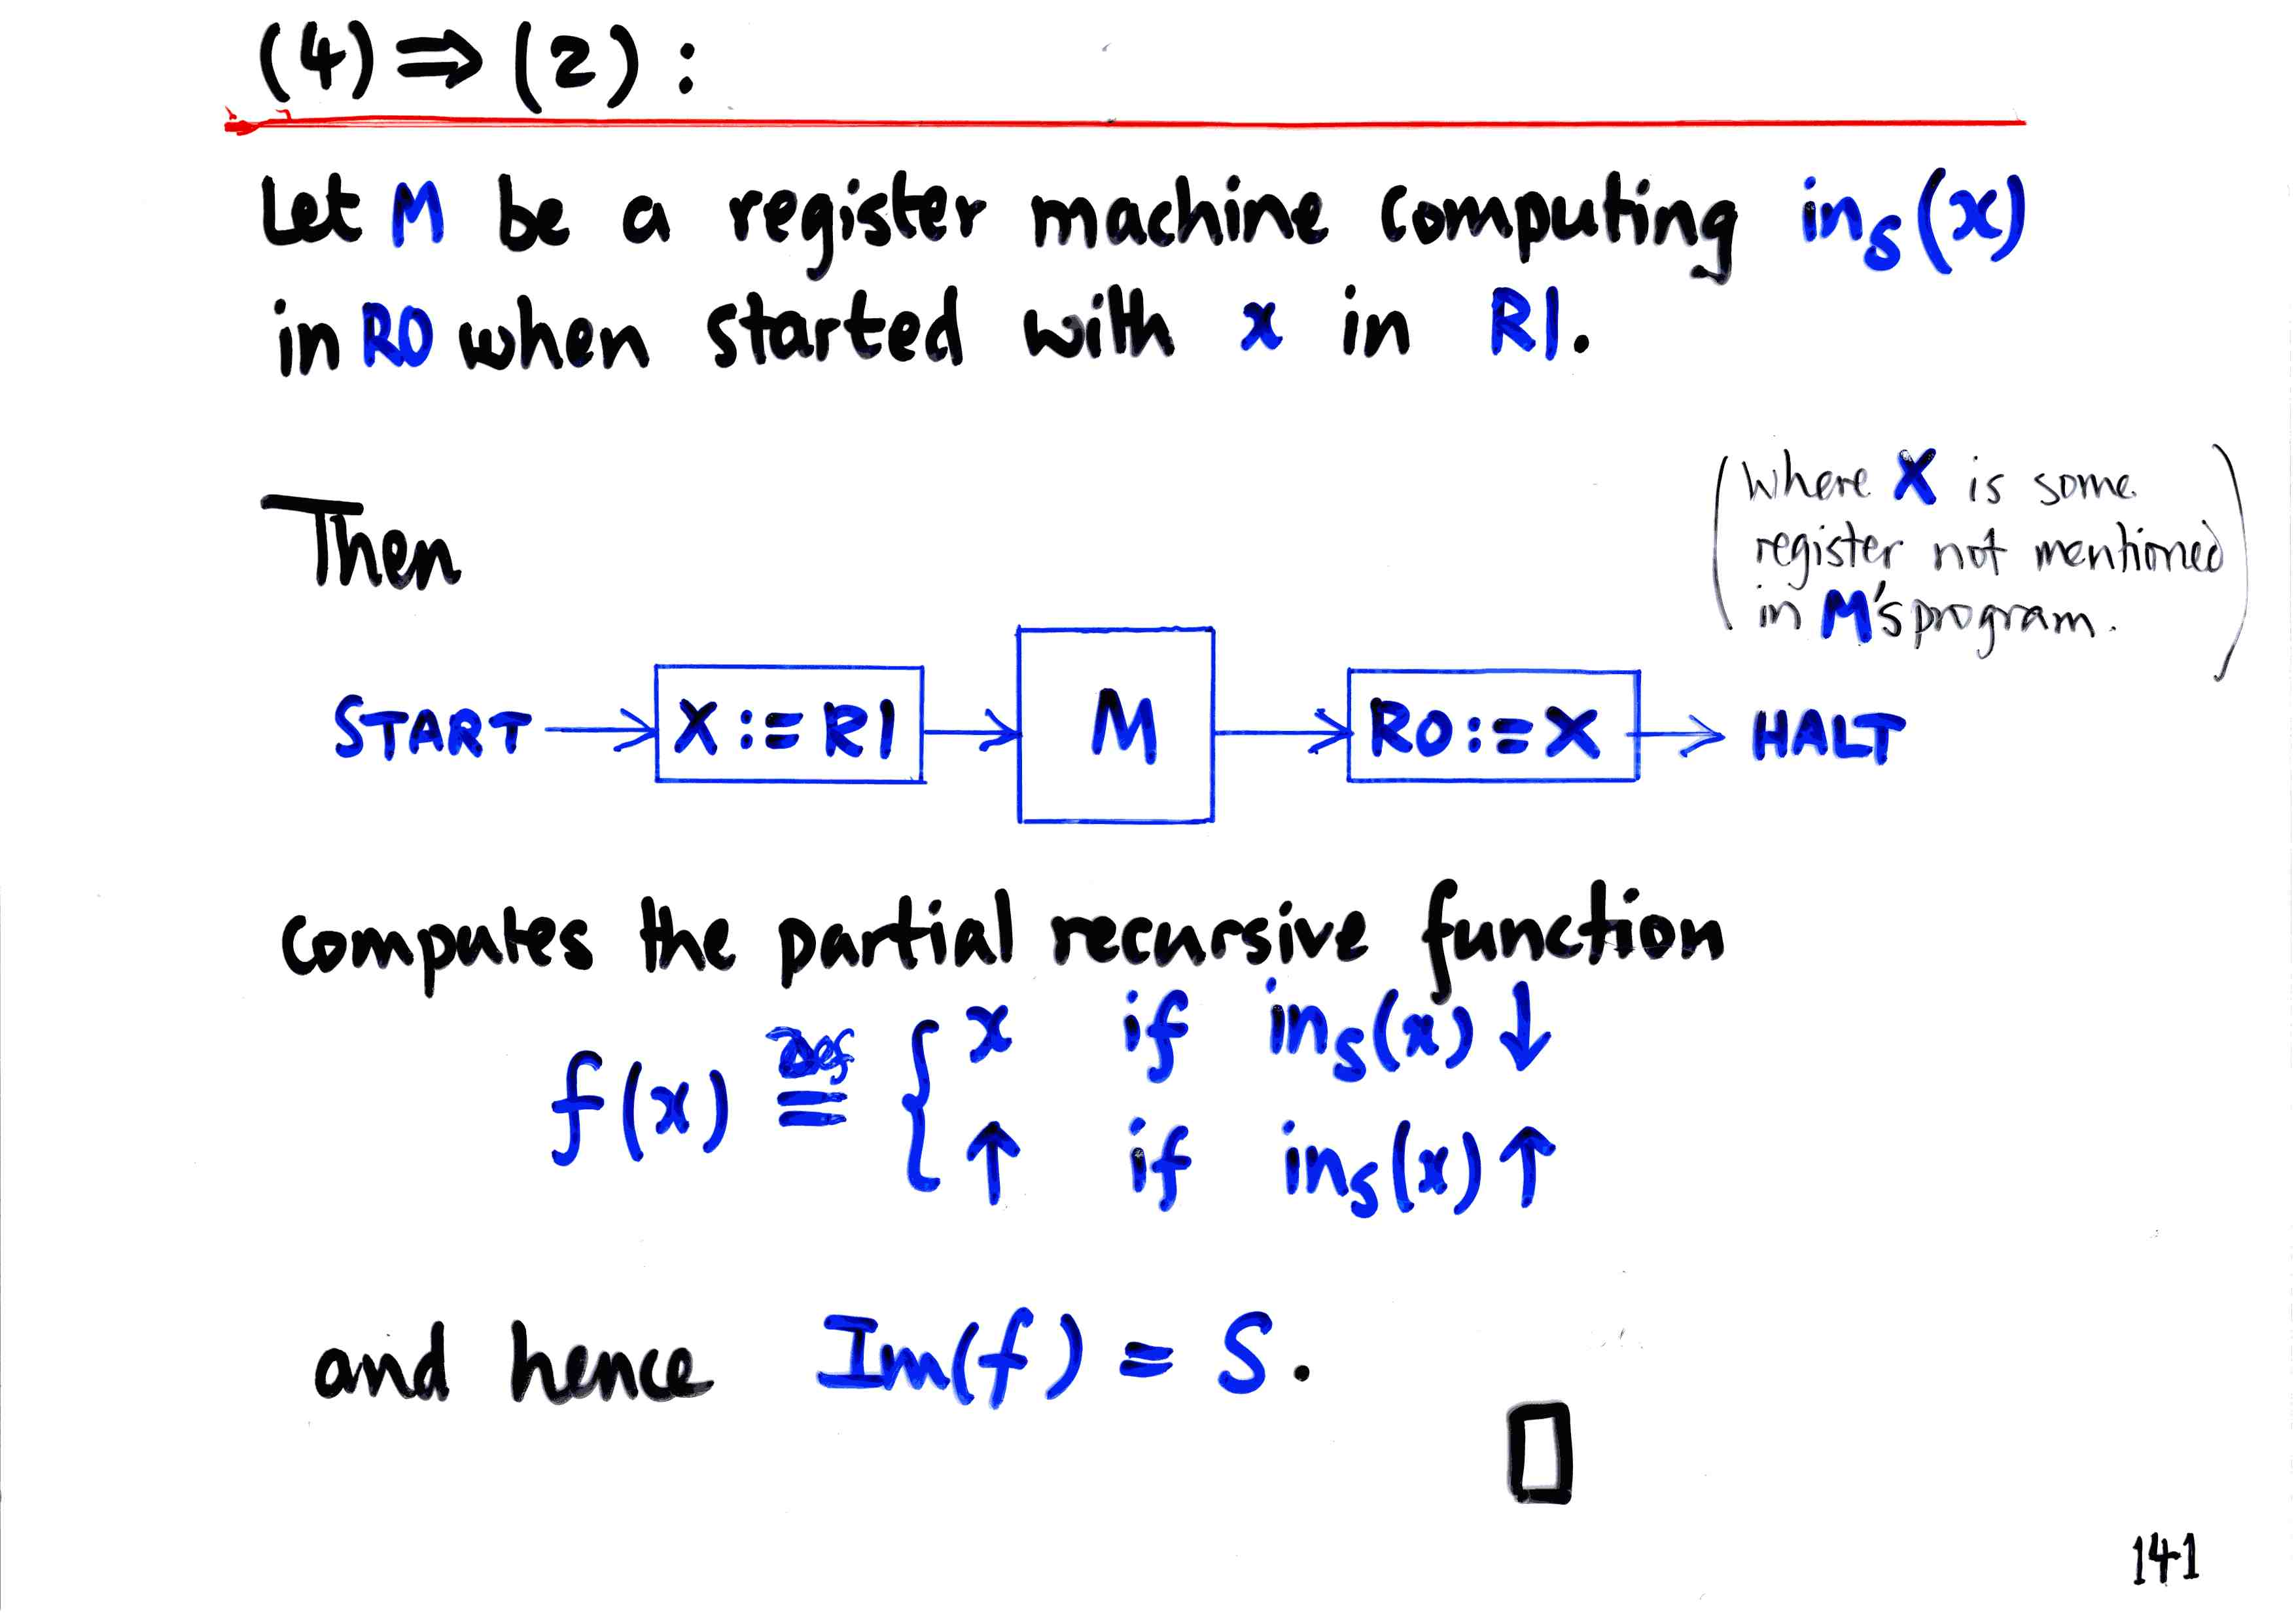 (4) ⇒ (2) :
Let M be a register machine computing in_S(x)
in R0 when started with x in R1.
(where X is some
register not mentioned
in M's program.)
Then
START → X := R1 → M → R0 := X → HALT
computes the partial recursive function
f(x) ≝ { x if in_S(x)↓
↑ if in_S(x)↑
and hence Im(f) = S.
□
141